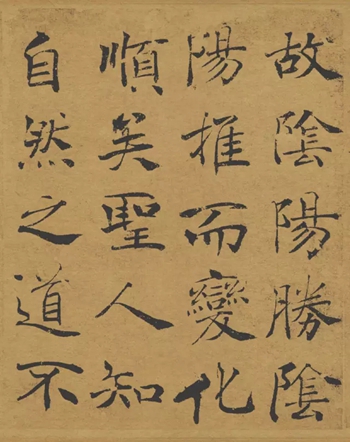 故陰陽勝陰
陽推而變化
順矣聖人知
自然之道不